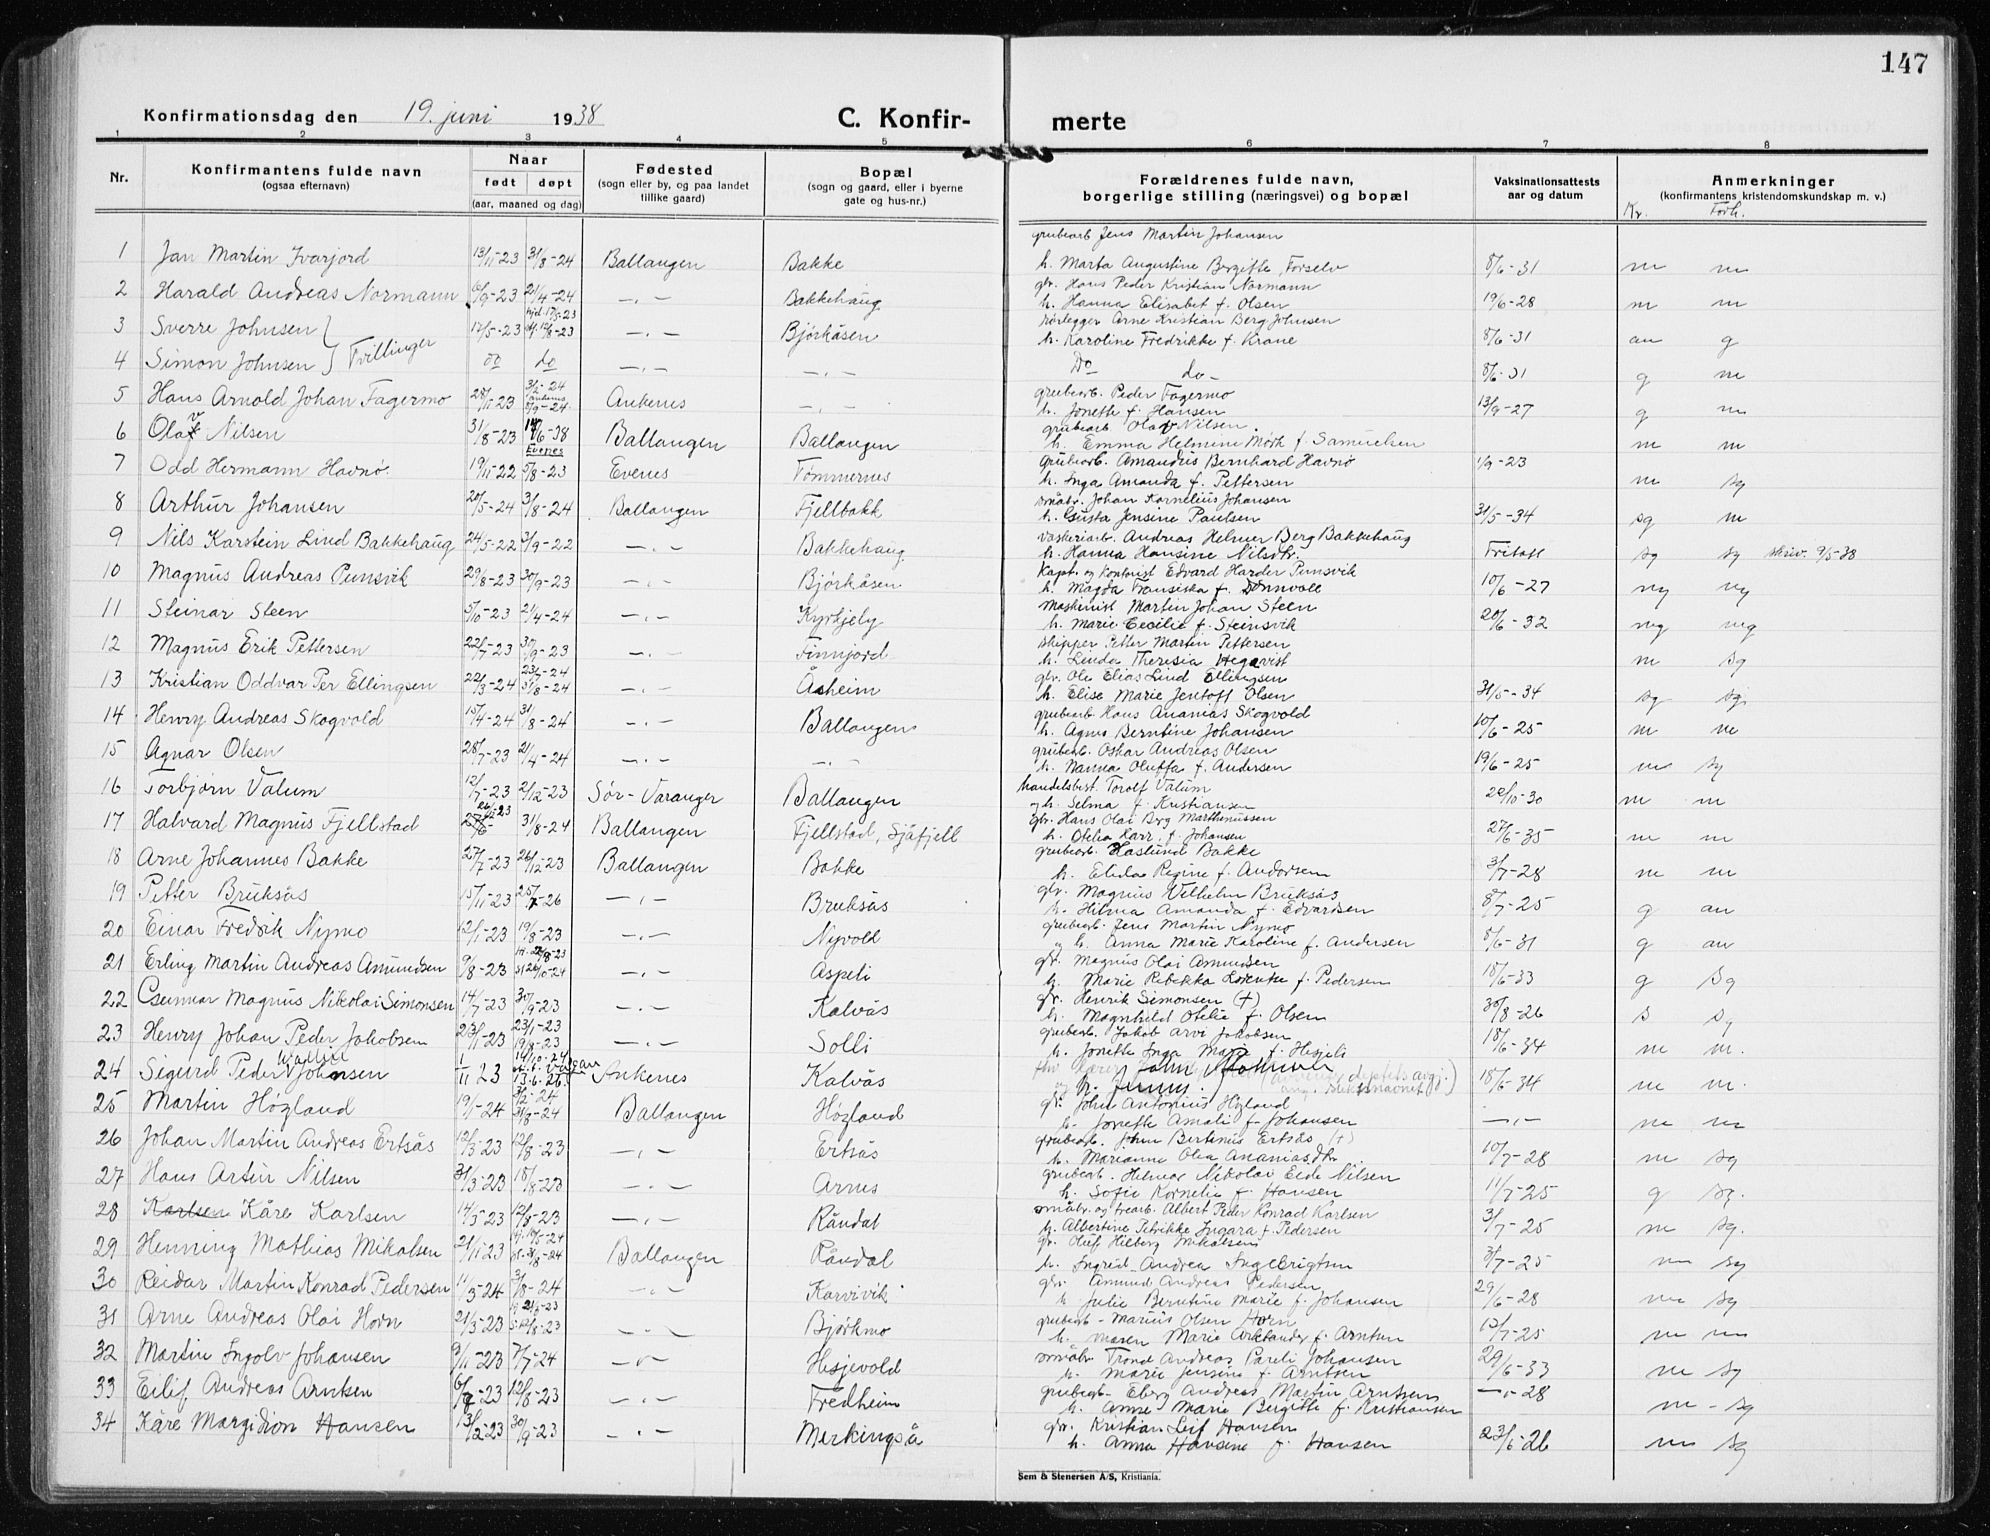 147
Konfirmationsdag den 19. juni 1938
C. Konfirmerte
1 2 3 4 5 6 7 8
Nr. Konfirmantens fulde navn (ogsaa efternavn) Naar født døpt (aar, maaned og dag) Fødested (sogn eller by, og paa landet tillike gaard) Bopæl (sogn og gaard, eller i byerne gate og hus-nr.) Forældrenes fulde navn, borgerlige stilling (næringsvei) og bopæl Vaksinationsattests aar og datum Anmerkninger (konfirmantens kristendomskundskap m. v.)
Kr. Forh.
grubearb. Jens Martin Johansen
1 Jan Martin Ivarjord 13/11-23 31/8-24 Ballangen Bakke h. Marta Augustine Bergitte Forselv 8/6-31 m m
gbr. Hans Peder Kristian Normann
2 Harald Andreas Normann 6/9-23 21/4-24 -"- Bakkehaug h. Hanna Elisabet f. Olsen 19/6-28 m m
rørlegger Arne Kristian Berg Johnsen
3 Sverre Johnsen } 17/5-23 Bjørkåsen h. Karoline Fredrikke f. Krane 8/6-31 an g
4 Simon Johnsen } Tvillinger do do -"- -"- Do do- 8/6-31 g m
grubearb. Peder Fagermo
5 Hans Arnold Johan Fagermo 28/11-23 Ankenes -"- h. Jonette f. Hansen 13/9-27 g m
grubearb Olav Nilsen.
6 Olav Nilsen 31/8-23 14/6-38 Ballangen Ballangen h. Emma Helmine Mørk f. Samuelsen m m
Evenes
Grubearb. Amandus Bernhard Havnø
7 Odd Hermann Havnø. 19/11-22 5/8-23 Evenes Tømmernes h. Inga Amanda f. Pettersen 1/9-23 m sg
småbr. Johan Kornelius Johansen
8 Arthur Johansen 20/5-24 31/8-24 Ballangen Fjellbakk h. Gusta Jensine Paulsen 31/5-34 sg m
vaskeriarb. Andreas Helmer Berg Bakkehaug
9 Nils Karstein Lind Bakkehaug 24/5-22 3/9-22 -"- Bakkehaug h. Hanna Hansine Nilsdtr. Fritatt sg sg skriv. 9/5-38
Kapt. og kontorist Edvard Harder Punsvik
10 Magnus Andreas Punsvik 29/8-23 30/9-23 -"- Bjørkåsen h. Magda Fransiska f. Dønnvold 10/6-27 mg mg
Maskinist Martin Johan Steen
11 Steinar Steen 5/10-23 21/4-24 -"- Kyrkjely h. Marie Cecilie f. Steinsvik 20/6-32 mg mg
skipper Petter Martin Pettersen
12 Magnus Erik Pettersen 22/7-23 30/9-23 -"- Finnjord h. Linda Theresia Hegqvist m sg
gbr. Ole Elias Lind Ellingsen
13 Kristian Oddvar Per Ellingsen 22/3-24 31/8-24 -"- Åsheim h. Elise Marie Jentoft Olsen 31/5-34 sg sg
grubearb. Hans Ananias Skogvold
14 Henry Andreas Skogvold 15/4-24 31/8-24 -"- Ballangen h. Agnes Berntine Johansen 10/6-25 m m
grubearb. Oskar Andreas Olsen
15 Agnar Olsen 28/7-23 21/4-24 -"- -"- h. Nanna Oluffa f. Andersen 19/6-25 m sg
handelsbest. Torolf Valum
16 Torbjørn Valum 12/7-23 2/12-23 Sør-Varanger Ballangen og h. Selma f. Kristiansen 20/10-30 m m
gbr. Hans Olai Berg Marthinussen
17 Halvard Magnus Fjellstad 31/8-24 Ballangen Fjellstad, Sjåfjell h. Otelia Karr. f. Johansen 27/6-35 m m
grubearb. Haslund Bakke
18 Arne Johannes Bakke 27/7-23 26/12-23 Ballangen Bakke h. Elida Regine f. Andersen 3/7-28 m m
gbr. Magnus Vilhelm Bruksås
19 Petter Bruksås 15/11-23 25/7-26 -"- Bruksås h. Hilma Amanda f. Edvardsen 8/7-25 g an
grubearb. Jens Martin Nymo
20 Einar Fredrik Nymo 12/1-23 19/8-23 -"- Nyvold og h. Anna Marie Karoline f. Andersen 8/6-31 g an
gbr. Magnus Olai Amundsen
21 Erling Martin Andreas Amundsen 9/8-23 -"- Aspeli h. Marie Rebekka Lorentse f. Pedersen 18/6-33 g sg
gbr. Henrik Simonsen (+)
22 Gunnar Magnus Nikolai Simonsen 14/7-23 30/9-23 -"- Kalvås h. Magnhild Otelie f. Olsen 30/8-26 s sg
grubearb. Jakob Arvi Jakobsen
23 Henry Johan Peder Jakobsen 19/8-23 -"- Solli h. Jonette Inga Marie f. Hesjeli 18/6-34 m m.
24 Sigurd Peder Johnsen 1/11 23 13.6.26. Ankenes Kalvås og h. Jenny. 18/6-34 m m.
gbr. John Antonius Høgland
25 Martin Høgland 19/1-24 31/8-24 Ballangen Høgland h. Jonette Amali f. Johansen -"- m m
grubearb. John Bertinus Ertsås (+)
26 Johan Martin Andreas Ertsås 12/3-23 12/8-23 -"- Ertsås h. Marianne Olea Ananiasdtr. 10/7-28 m sg
grubearb. Helmer Nikolai Eide Nilsen
27 Hans Artur Nilsen 31/3-23 18/8-23 -"- Arnes h. Sofie Kornelie f. Hansen 11/7-25 g sg.
småbr. og trearb. Albert Peder Konrad Karlsen
28 Karlsen Kåre Karlsen 14/5-23 12/8-23 -"- Råndal h. Albertine Petrikke Ingara f. Pedersen 3/7-25 m sg.
gbr. Oluf Hilberg Mikalsen
29 Henning Mathias Mikalsen 21/11-23 Ballangen Råndal h. Ingrid Andrea Ingebrigtsen 3/7-25 m sg
gbr. Amund Andreas Pedersen
30 Reidar Martin Konrad Pedersen 11/3-24 3/8-24 -"- Karvivik h. Julie Berntine Marie f. Johansen 29/6-28 m sg
grubearb. Marius Olsen Horn
31 Arne Andreas Olai Horn 21/3-23 12/8-23 -"- Bjørkmo h. Maren Marie Arktander f. Arntsen 13/7-25 m m
småbr. Trond Andreas Pareli Johansen
32 Martin Ingolv Johansen 9/11-23 7/7-24 -"- Hesjevold h. Marie Jensine f. Arntsen 29/6-33 m sg
grubearb. Eberg Andreas Martin Arntsen
33 Eilif Andreas Arntsen 12/8-23 -"- Fredheim h. Anne Marie Bergitte f. Kristiansen -"-28 m - sg
gbr. Kristian Leif Hansen
34 Kåre Margidion Hansen 13/2-23 30/9-23 -"- Merkingså h. Anna Hansine f. Hansen 23/6-26 m sg
Sem & Stenersen A/S, Kristiania.